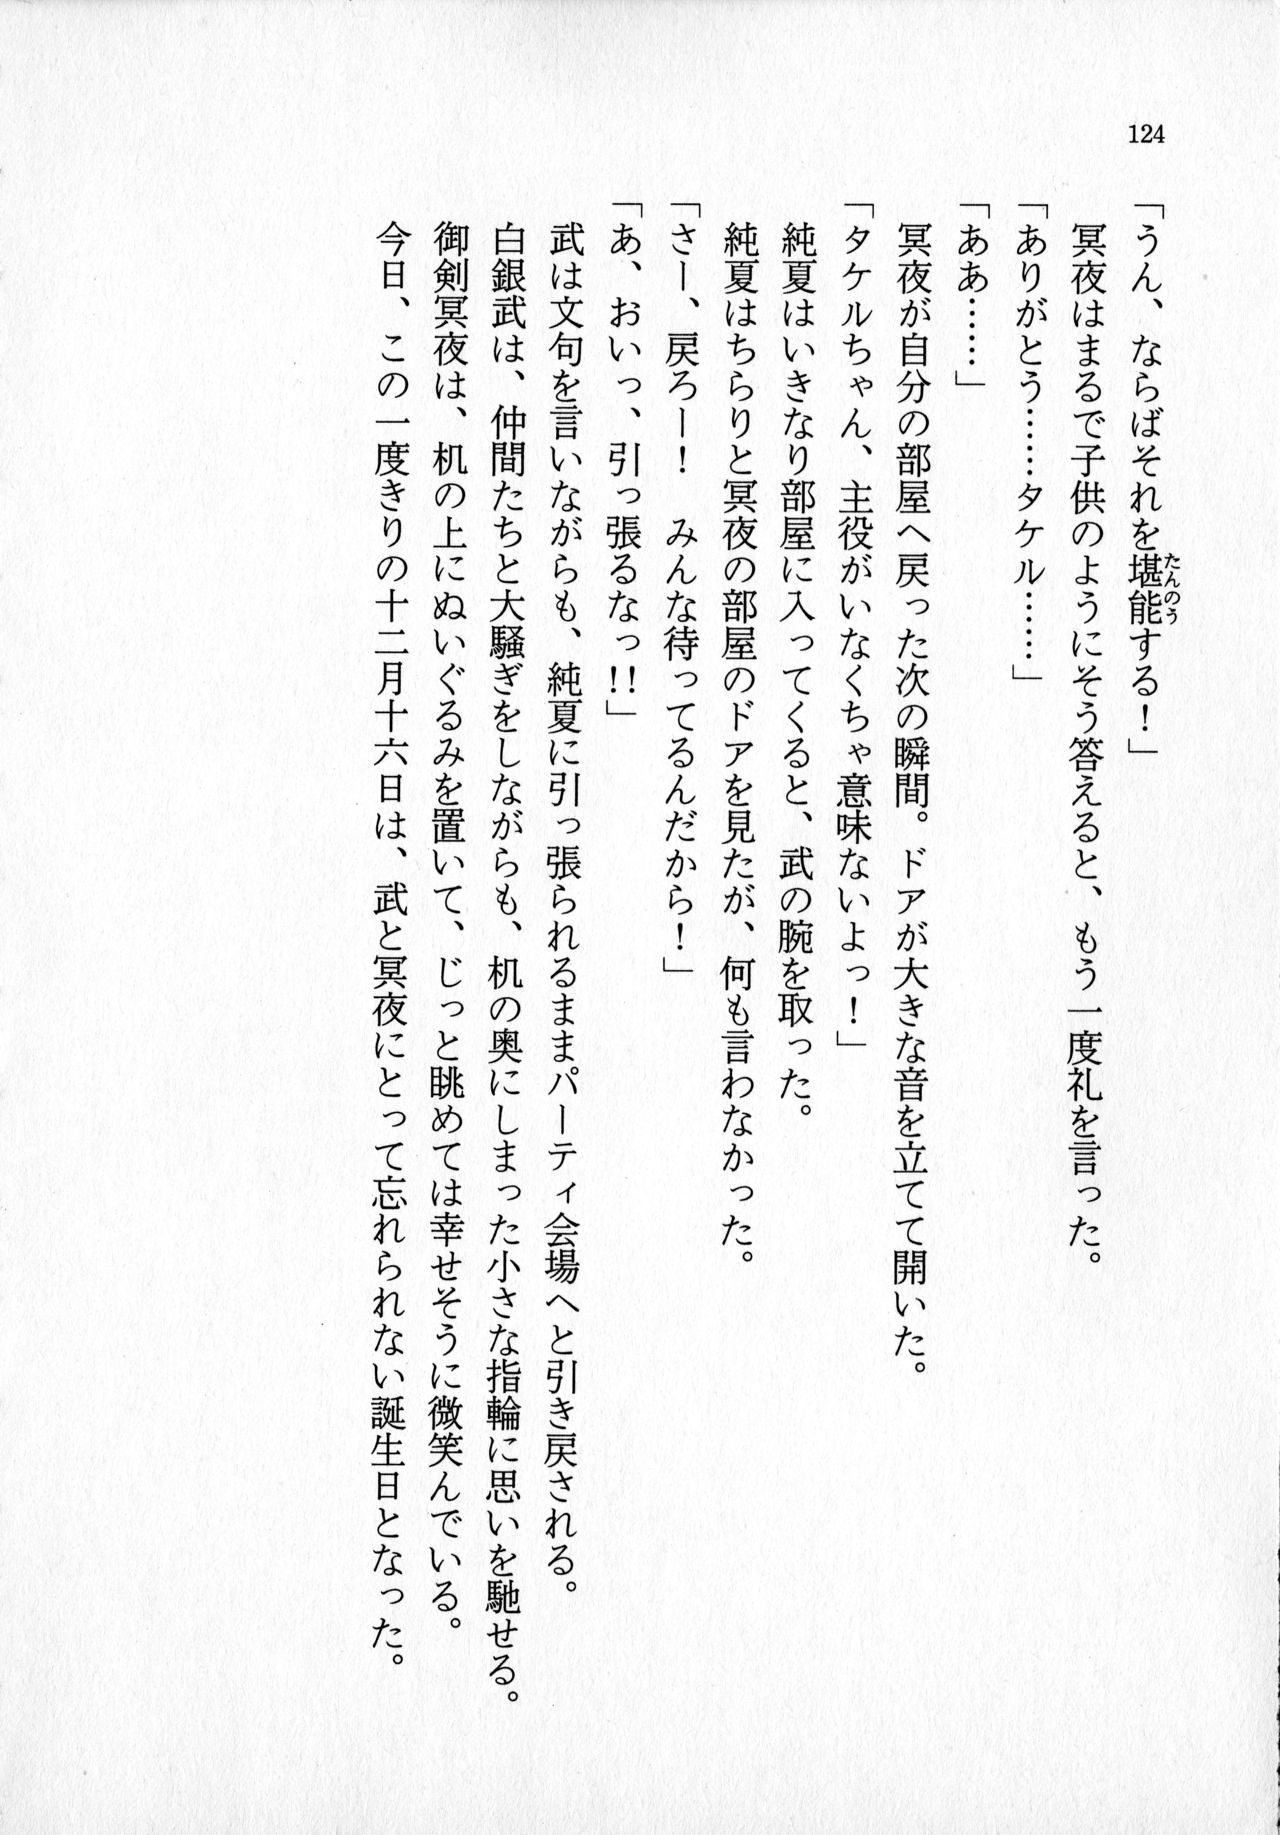 124
「うん、ならばそれを堪能する！」
たんのう
冥夜はまるで子供のようにそう答えると、もう一度礼を言った。
「ありがとう……タケル……」
「ああ……」
冥夜が自分の部屋へ戻った次の瞬間。ドアが大きな音を立てて開いた。
「タケルちゃん、主役がいなくちゃ意味ないよっ！」
純夏はいきなり部屋に入ってくると、武の腕を取った。
純夏はちらりと冥夜の部屋のドアを見たが、何も言わなかった。
「さー、戻ろー！　みんな待ってるんだから！」
「あ、おいっ、引っ張るなっ!!」
武は文句を言いながらも、純夏に引っ張られるままパーティ会場へと引き戻される。
白銀武は、仲間たちと大騒ぎをしながらも、机の奥にしまった小さな指輪に思いを馳せる。
御剣冥夜は、机の上にぬいぐるみを置いて、じっと眺めては幸せそうに微笑んでいる。
今日、この一度きりの十二月十六日は、武と冥夜にとって忘れられない誕生日となった。